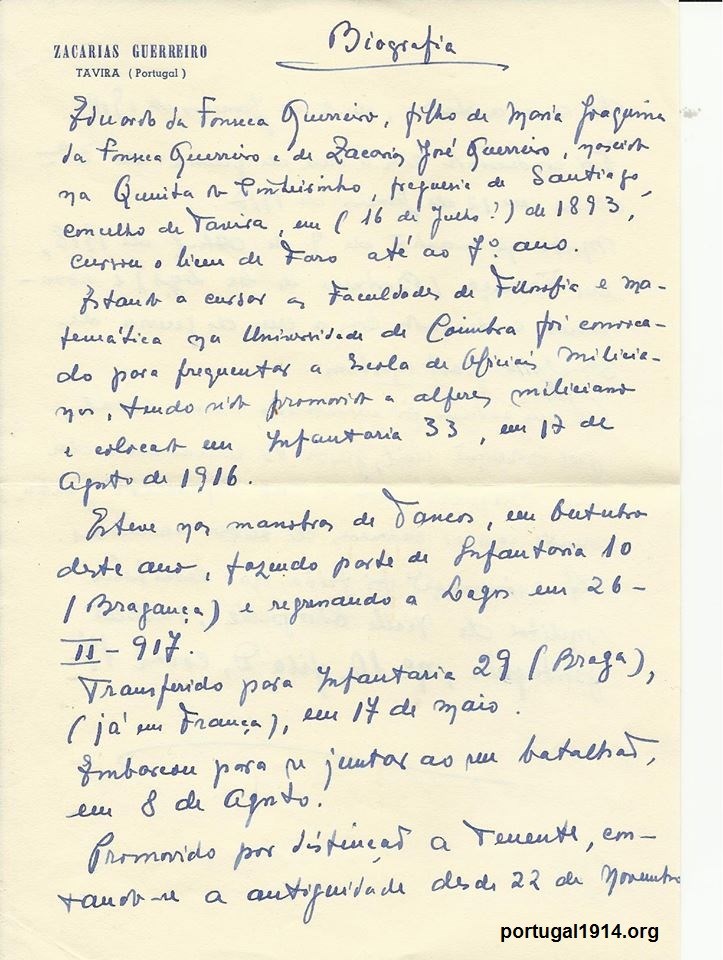 ZACARIAS GUERREIRO
TAVIRA (Portugal)
Biografia
Eduardo da Fonseca Guerreiro, filho de Maria Joaquina
da Fonseca Guerreiro e de Zacarias José Guerreiro, nasceu
na Quinta do Pinheirinho, freguesia de Santiago,
concelho de Tavira, em (16 de Julho?) de 1893,
cursou o liceu de Faro até ao 7º ano.
Estando a cursar as Faculdades de Filosofia e ma-
temática na Universidade de Coimbra foi convoca-
do para frequentar a Escola de Oficiais Milicia-
nos, tendo sido promovido a alferes miliciano
e colocado em Infantaria 33, em 17 de
Agosto de 1916.
Esteve nas manobras de Tancos, em Outubro
deste ano, fazendo parte de Infantaria 10
(Bragança) e regressando a Lagos em 26-
II-917.
Transferido para Infantaria 29 (Braga),
(já em França), em 17 de maio.
Embarcou para se juntar ao seu batalhão,
em 8 de Agosto.
Promovido por distinção a Tenente, con-
tando-se a antiguidade desde 22 de Novembro
portugal1914.org